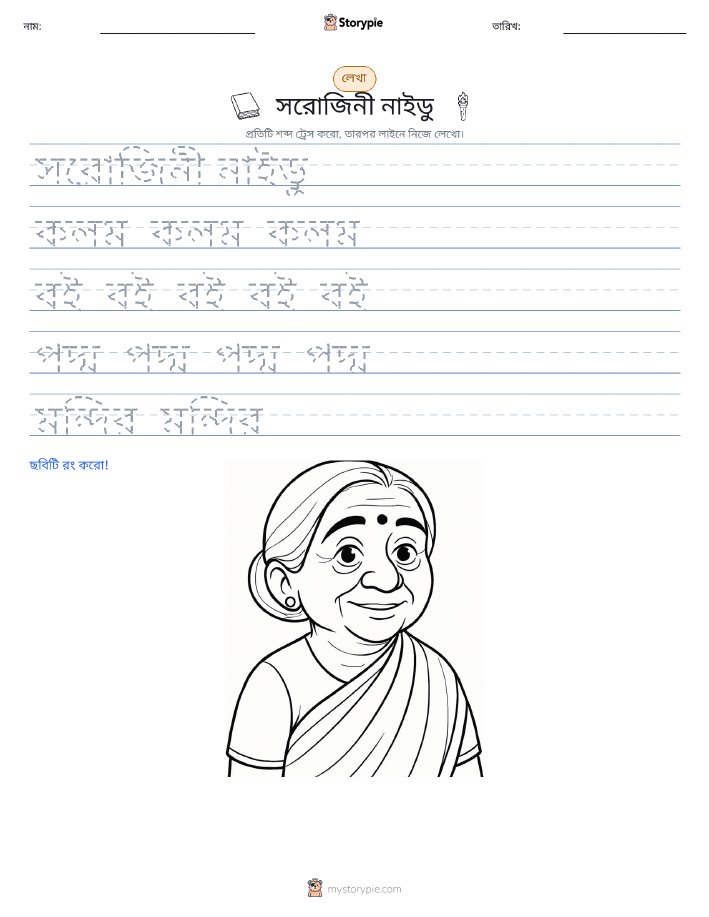 নাম:
Storypie
তারিখ:
লেখা
সরোজিনী নাইডু
প্রতিটি শব্দ ট্রেস করো, তারপর লাইনে নিজে লেখো।
সরোজিনী নাইডু
কলম কলম কলম
বই বই বই বই বই
পদ্ম পদ্ম পদ্ম পদ্ম
মন্দির মন্দির
ছবিটি রং করো!
mystorypie.com